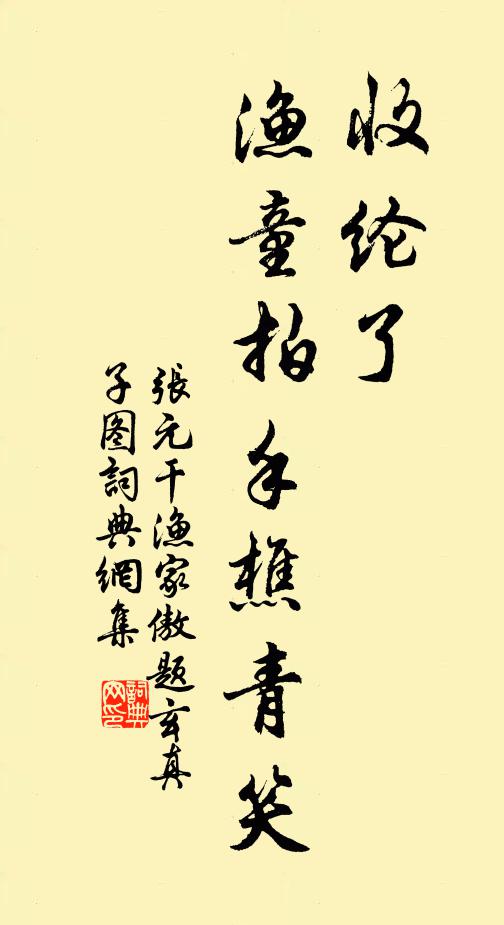 收纶了
渔童拍手樵青笑
張元干渔家傲题玄真
子图詞典網集
詞典
网印